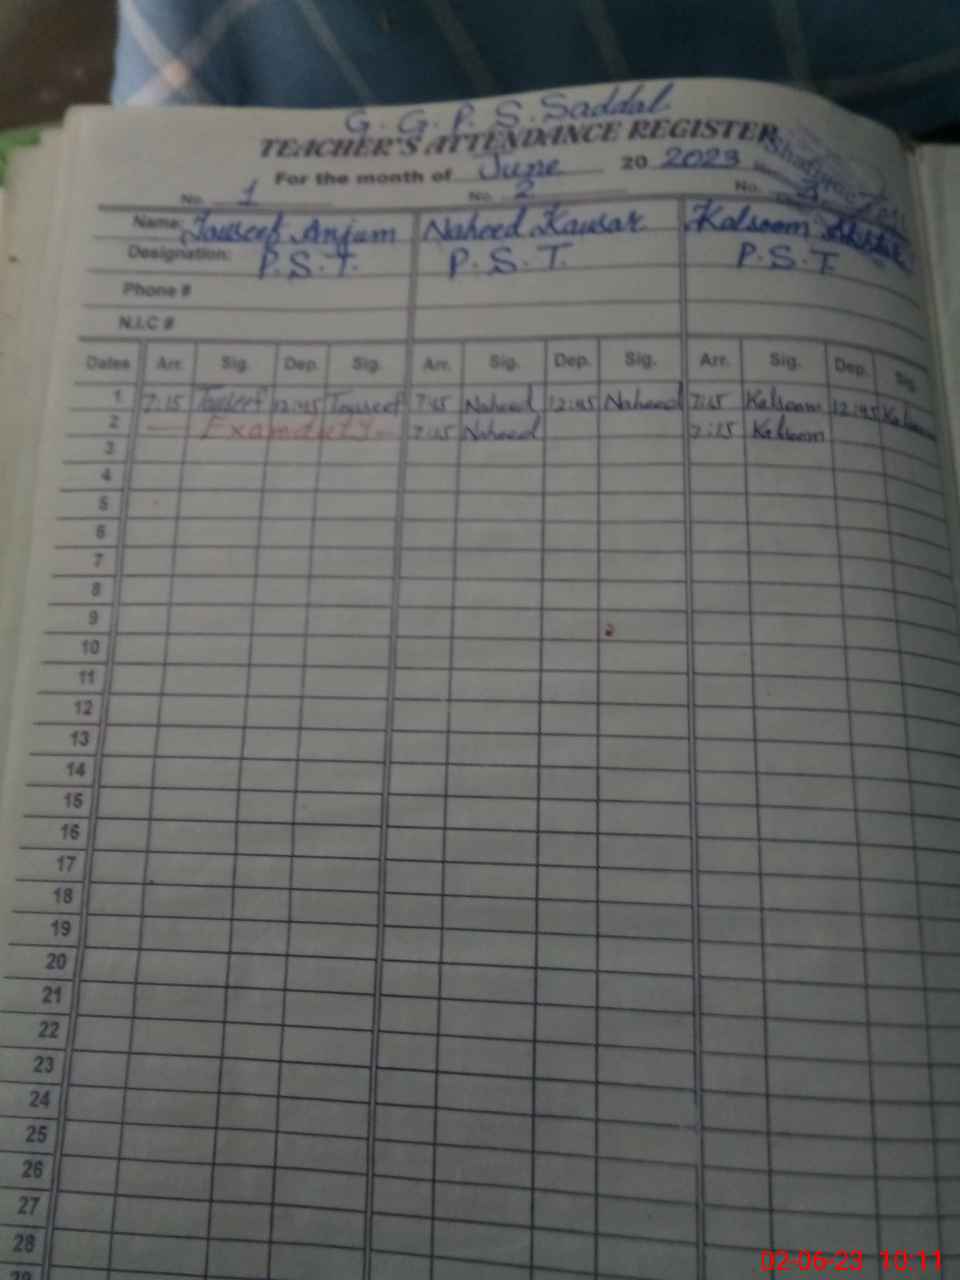 G. G. P. S. Saddal
TEACHER'S ATTENDANCE REGISTER
For the month of June 20 2023
No. 1 No. 2 No. 3
Name: Touseef Anjum Naheed Kausar Kalsoom
Designation: P.S.T. P.S.T. P.S.T
Phone #
N.I.C #
Dates Arr. Sig. Dep. Sig. Arr. Sig. Dep. Sig. Arr. Sig. Dep. Sig.
1 7:15 Touseef 12:45 Touseef 7:15 Naheed 12:45 Naheed 7:15 Kalsoom 12:45 Kalsoom
2 Exam duty 7:15 Naheed 7:15 Kalsoom
3
4
5
6
7
8
9
10
11
12
13
14
15
16
17
18
19
20
21
22
23
24
25
26
27
28
29
02-06-23 10:11